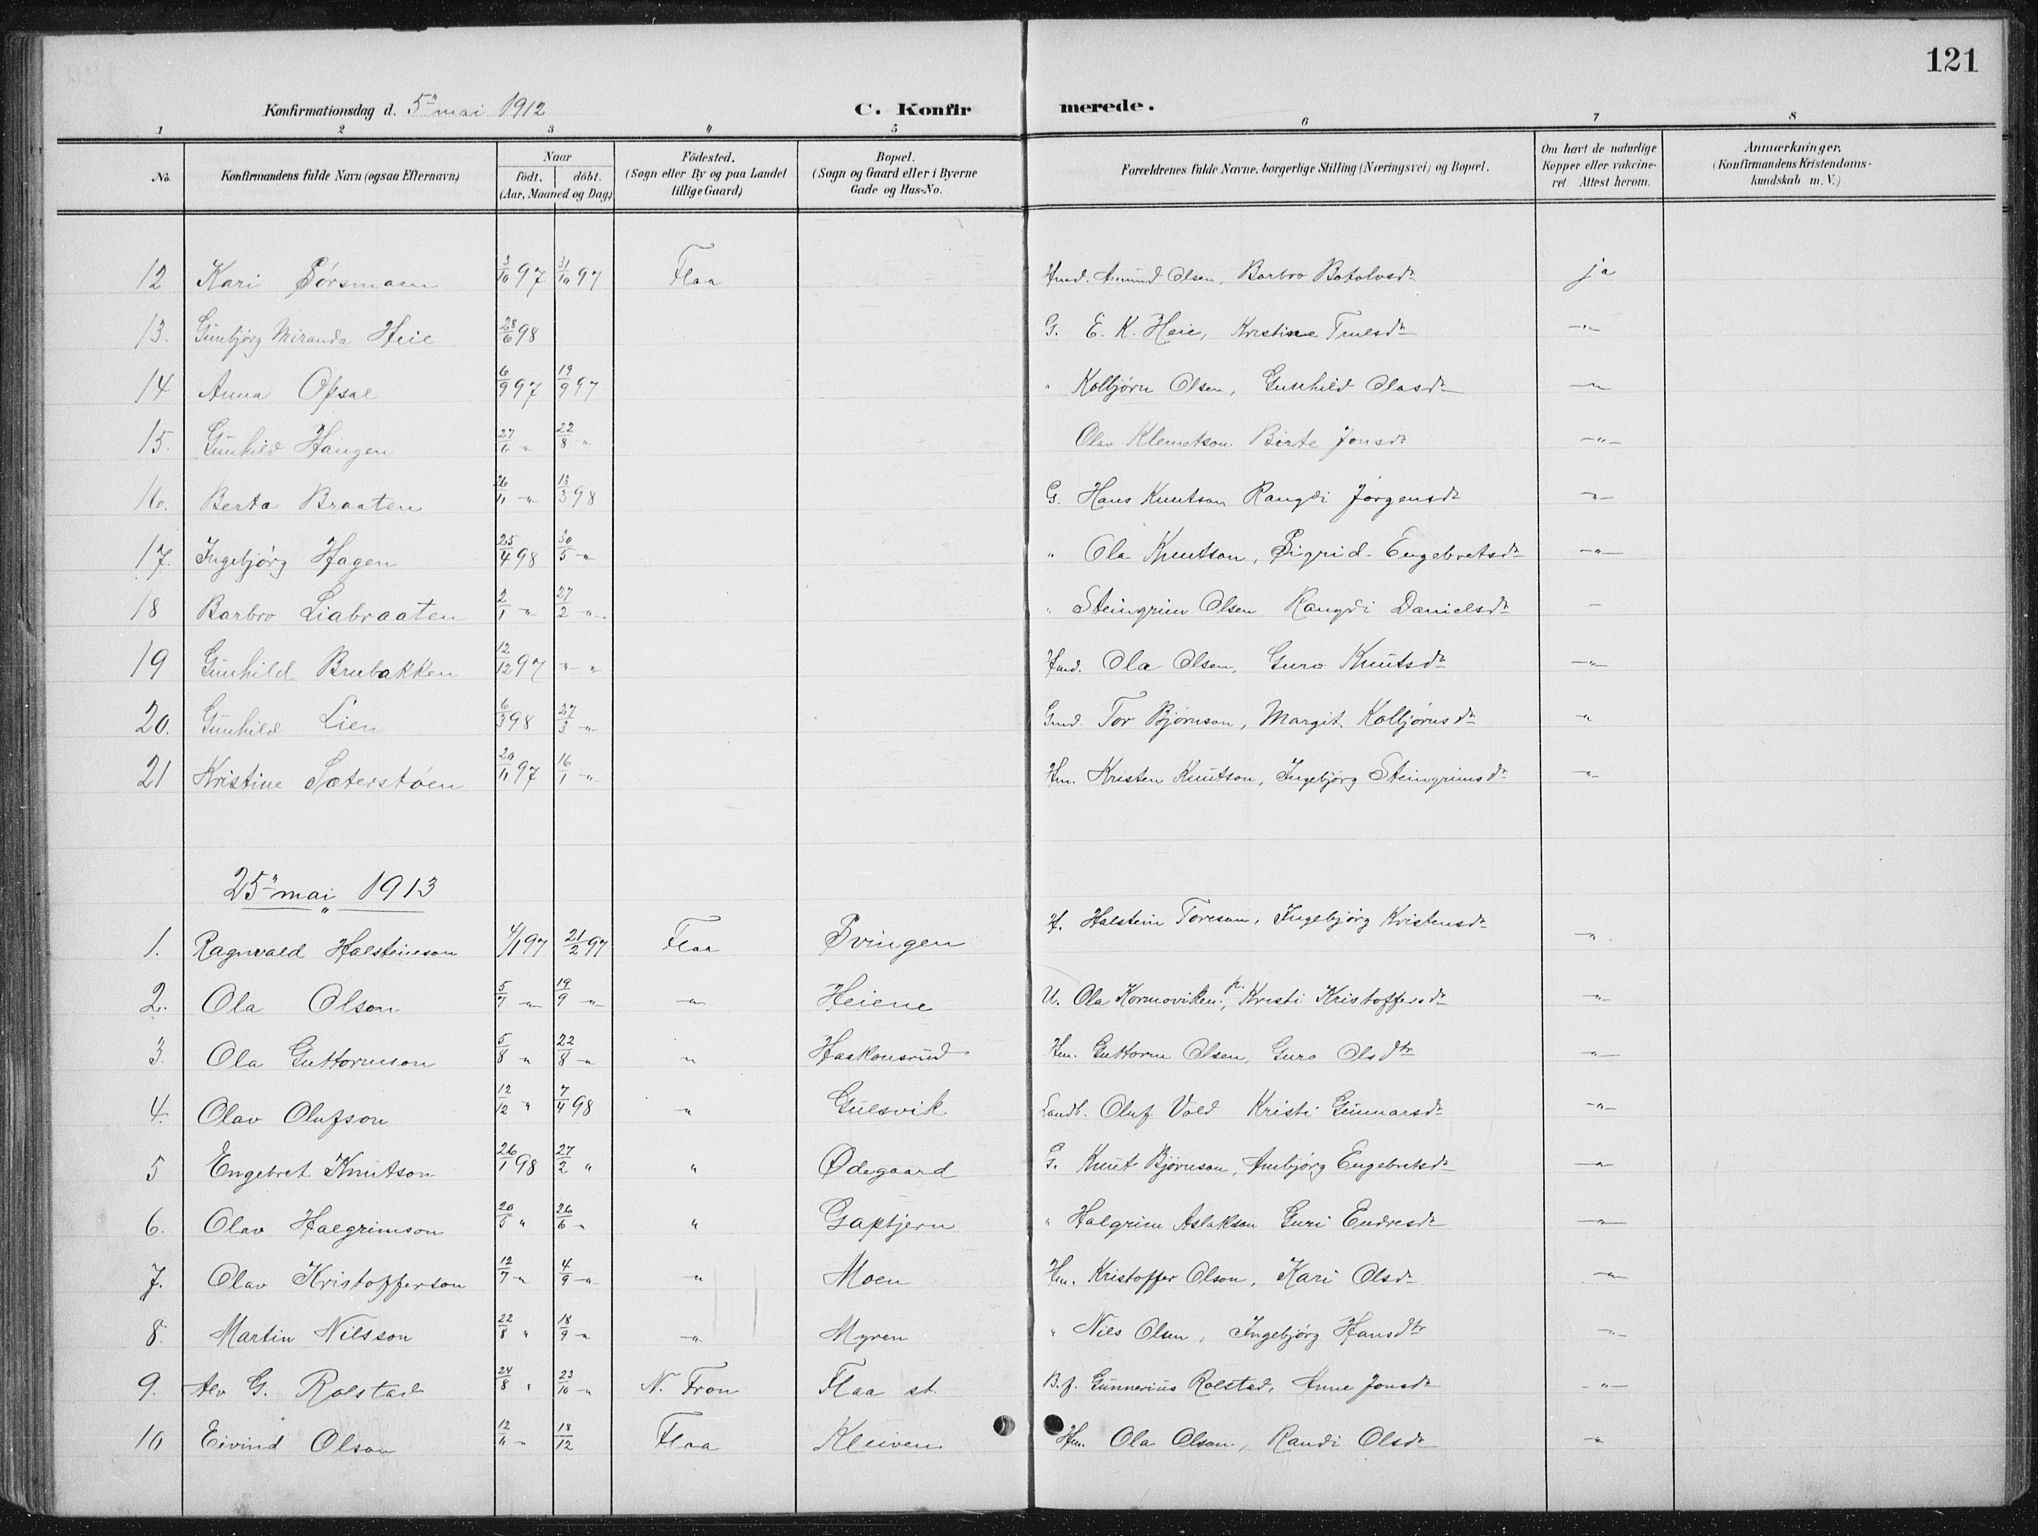 121
Konfirmationsdag d. 5" mai 1912 C. Konfirmerede.
1 2 3 4 5 6 7 8
No. Konfirmandens fulde Navn (ogsaa Efternavn) Naar födt. döbt. (Aar, Maaned og Dag) Födested. (Sogn eller By og paa Landet tillige Gaard) Bopæl. (Sogn og Gaard eller i Byerne Gade og Hus-No. Forældrenes fulde Navne, borgerlige Stilling (Næringsvei) og Bopæl. Om havt de naturlige Kopper eller vakcineret Attest herom. Anmærkninger. (Konfirmandens Kristendomskundskab m. V.)
12 Kari Sørsmoen 3/10 97 31/10 97 Flaa Hmd. Amund Olsen, Barbro Botolvsdr ja
13. Gunbjørg Miranda Heie 28/6 98 G. E. K. Heie, Kristine Trulsdr -"-
14 Anna Opsal 6/9 97 19/9 97 " Kolbjørn Olsen, Gunhild Olasdr -"-
15. Gunhild Haugen 27/6 " 22/8 -"- Olav Klemetson Birte Jonsdr -"-
16. Berta Braaten 26/11 -"- 13/3 98 G. Hans Knutson Rangdi Jørgensdr -"-
17. Ingebjørg Hagen 25/4 98 30/5 -"- " Ola Knutson, Sigrid Engebretsdr -"-
18 Barbro Liabraaten 2/1 -"- 27/2 -"- " Steingrim Olsen Rangdi Danielsdr -
19 Gunhild Brubakken 12/12 97 " " Hmd. Ola Olsen, Guro Knutsdr -"-
20. Gunhild Lien 6/3 98 27/3 -"- Gmd. Tor Bjørnson, Margit Kolbjørnsdr -"-
21 Kristine Sæterstøen 20/11 97 16/1 -"- Hm. Kristen Knutson, Ingebjørg Steingrimsdr -"-
25" mai 1913
1. Ragnvald Halsteinson 4/1 97 21/2 97 Flaa Svingen H. Halstein Toreson, Ingebjørg Kristensdr -"-
2. Ola Olson 5/7 -"- 19/9 -"- -"- Heiene U. Ola Kornoviken, p. Kristi Kristoffersdr -"-
3. Ola Guttormson 5/8 " 22/8 -"- " Haakonsrud Hm. Guttorm Olsen, Guro Olsdtr -"-
4. Olav Olufson 12/12 " 7/4 98 " Gulsvik Landh. Oluf Vold Kristi Gunnarsdr -"-
5 Engebret Knutson 26/1 98 27/2 " " Ødegaard G. Knut Bjørnson, Anbjørg Engebretsdr -"-
6. Olav Halgrimson 20/5 " 26/6 -"- " Gaptjern " Halgrim Aslakson Guri Endresdr -"-
7. Olav Kristofferson 12/7 -"- 4/9 -"- -"- Moen Hm. Kristoffer Olson, Kari Olsdr -"-
8. Martin Nilsson 22/8 " 18/9 -"- -"- Myren " Nils Olsen, Ingebjørg Hansdtr -"-
9. Alv G. Rolstad 24/8 " 23/10 -"- N. Fron Flaa st. B.f. Gunnerius Rolstad, Anne Jonsdr -"-
10 Eivind Olson 12/11 -"- 18/12 Flaa Kleiven Hm. Ola Olson, Randi Olsdr -"-